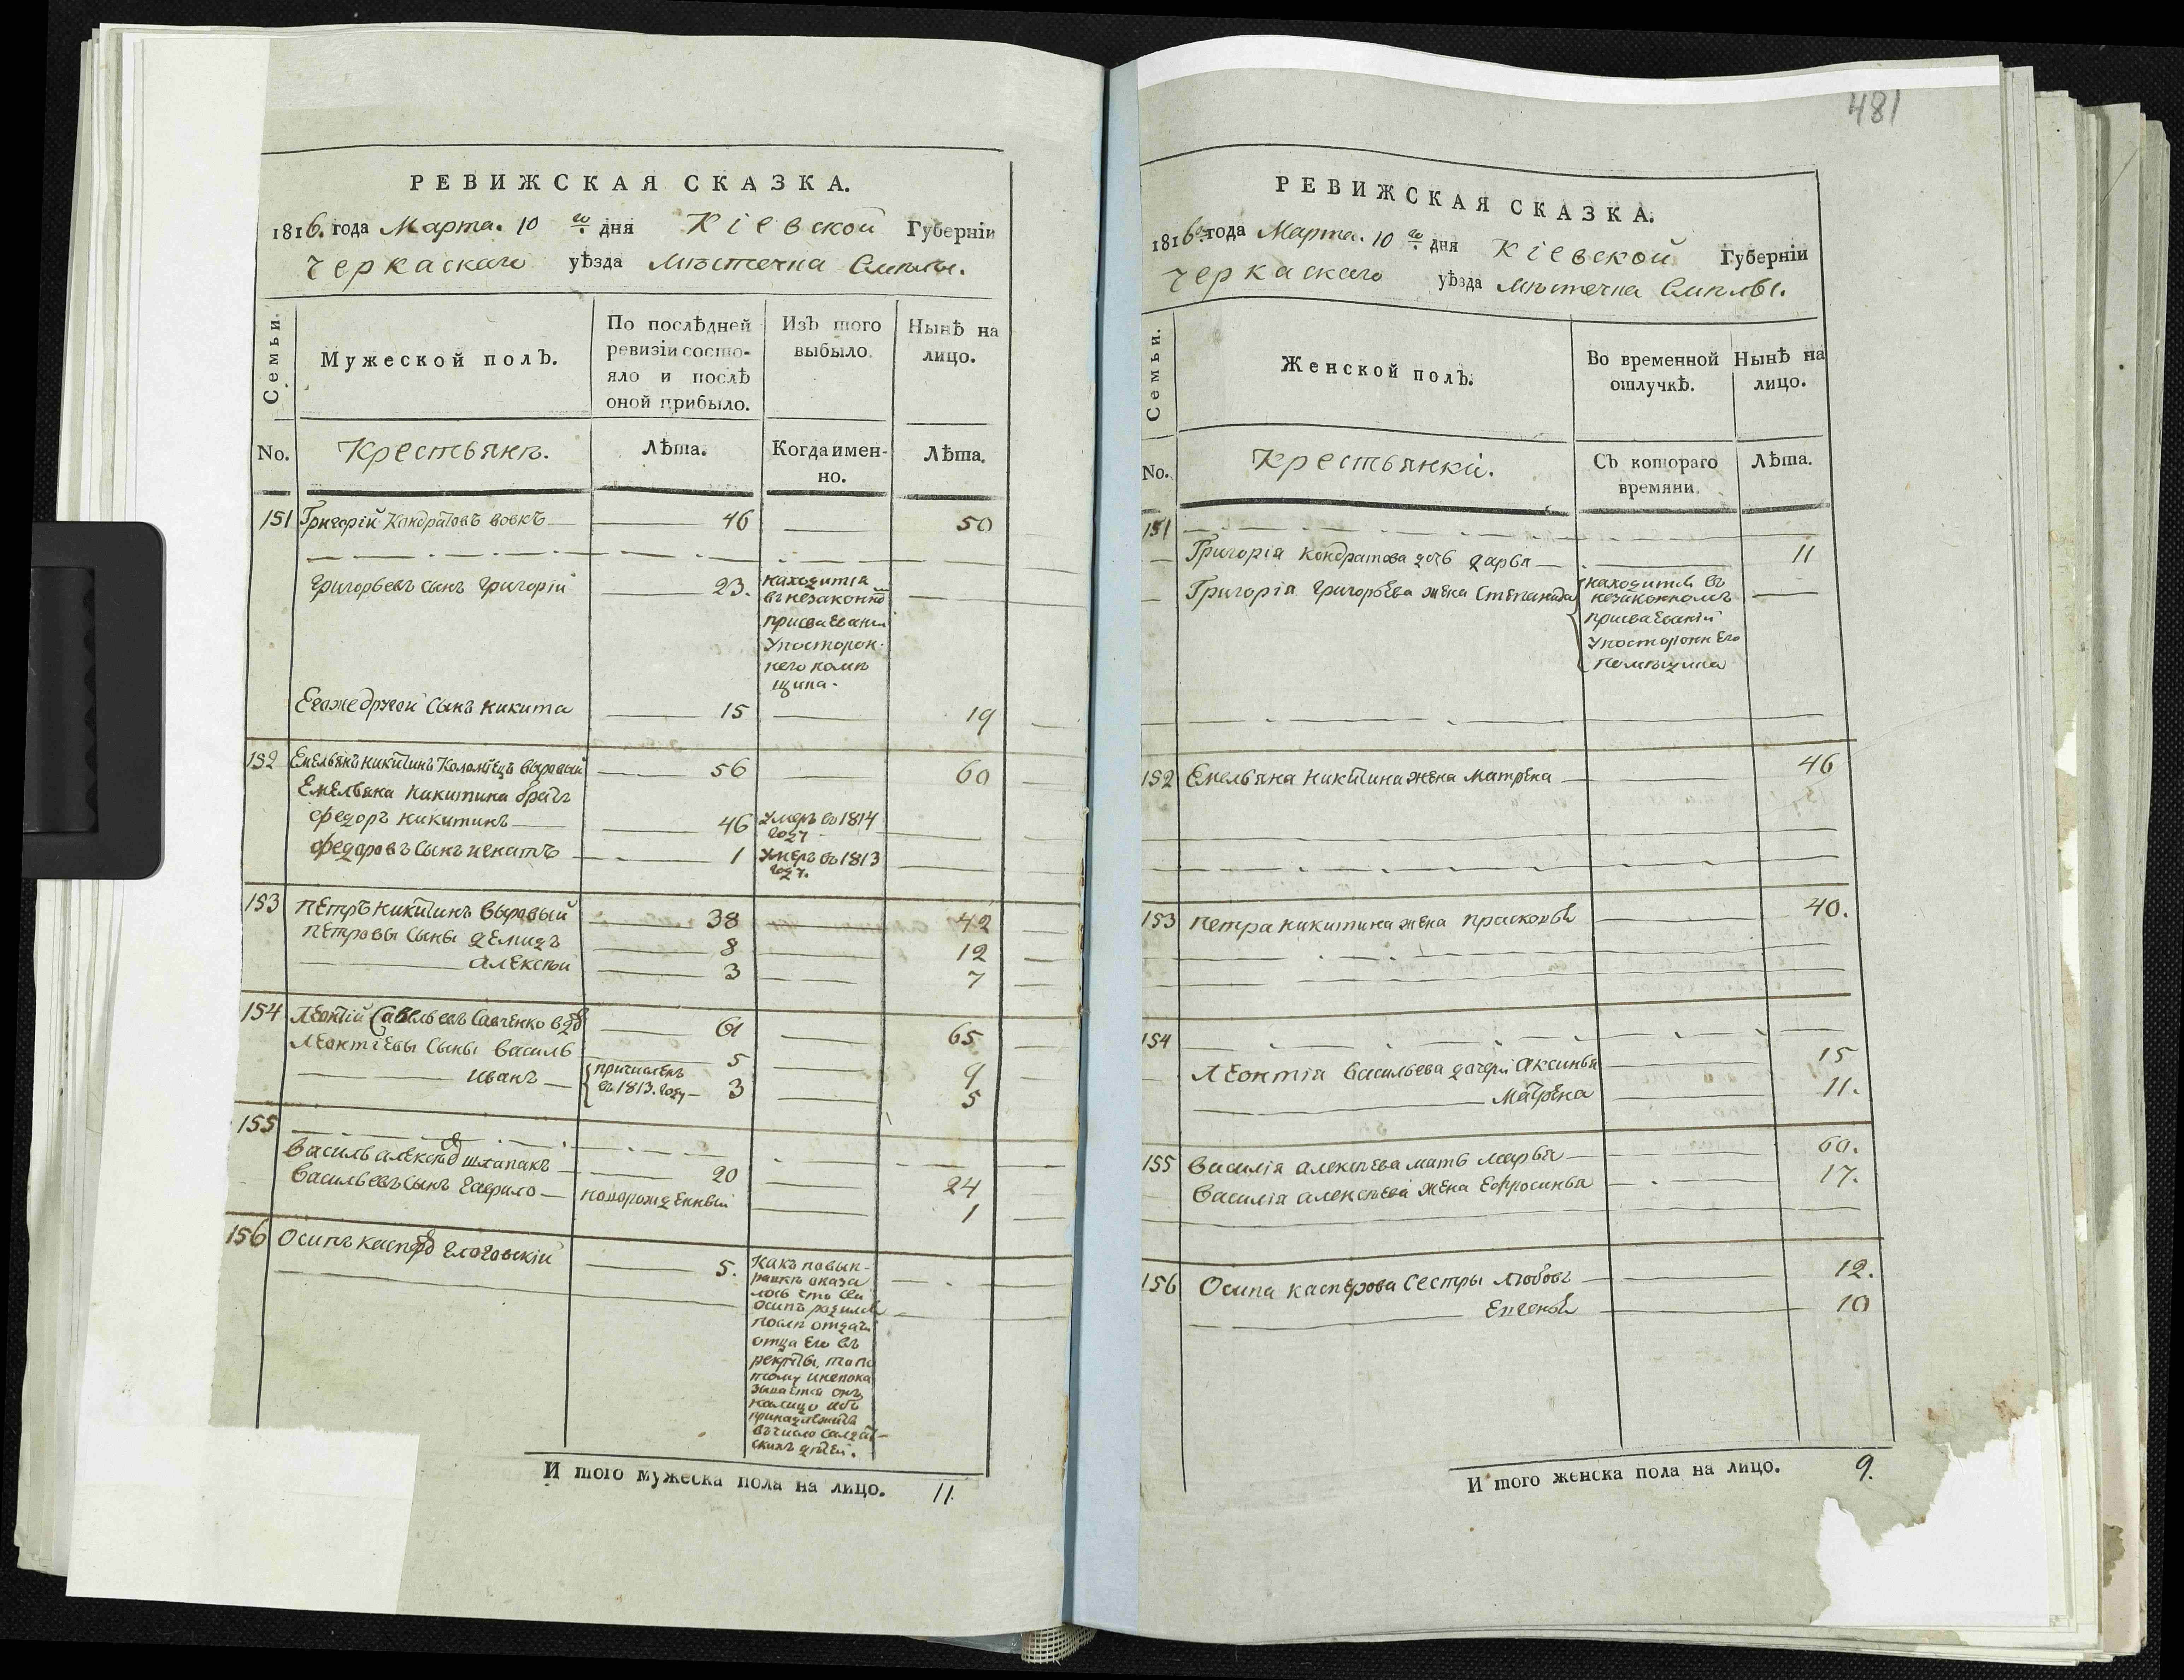 РЕВИЖСКАЯ СКАЗКА.
1816. года Марта. 10 го дня Кіевской Губерніи
Черкаскаго уѣзда Мѣстечка Смѣлы.
Семьи.
Мужеской полЪ.
По послѣдней ревизіи состо-
яло и послѣ
оной прибыло.
ИзЪ того
выбыло.
Нынѣ на
лицо.
No.
Крестьянъ.
Лѣта.
Когда имен-
но.
Лѣта.
151 Григорій Кондратовъ вовкъ 46 50
Григорьевъ сынъ Григорій 23. находится
въ незаконно
присваеваніи
У посторон-
него помѣ
щика.
Егоже другой сынъ Никита 15 19
152 Емельянъ Никитинъ Коломіецъ Выровый 56 60
Емельяна Никитина братъ
Федоръ Никитинъ 46 Умеръ въ 1814
году
Федоровъ сынъ Игнатъ 1 Умеръ въ 1813
году.
153 Петръ Никитинъ Выровый 38 42
Петровы сыны Демидъ 8 12
Алексѣй 3 7
154 Леонтій Савельевъ Савченко 61 65
Леонтіевы сыны Василь 5 9
Иванъ { причисленъ
въ 1813. году 3 5
155
Василь Алексѣевъ шлапакъ 20 24
Васильевъ сынъ Гаврило новорожденный 1
156 Осипъ Касперовъ Глоговскій 5. Какъ повып-
равкѣ оказа
лось что сей
Осипъ родился
послѣ отдачи
отца его въ
рекруты, то по
тому и непока
зывается онъ
налицо ибо
принадлежитъ
въ число салдат-
скихъ дѣтей.
И того мужеска пола на лицо. 11.
481
РЕВИЖСКАЯ СКАЗКА.
1816 года Марта. 10 го дня Кіевской Губерніи
Черкаскаго уѣзда Мѣстечка Смѣлы.
Семьи.
Женской полЪ.
Во временной
отлучкѣ.
Нынѣ на
лицо.
No.
Крестьянки.
СЪ котораго
времяни.
Лѣта.
151
Григорія Кондратова дочь Дарья 11
Григорія Григорьева жена Степанида { находится въ
незаконномъ
присваеваніи
У посторонн его
помѣщика
152 Емельяна Никитина жена Матрена 46
153 Петра Никитина жена Прасковья 40.
154
Леонтія Васильева дочери Аксинья 15
Матрена 11.
155 Василія Алексѣева мать Марья 60.
Василія Алексѣева жена Ефросинья 17.
156 Осипа Касперова сестры Любовь 12.
Евгенья 10
И того женска пола на лицо. 9.